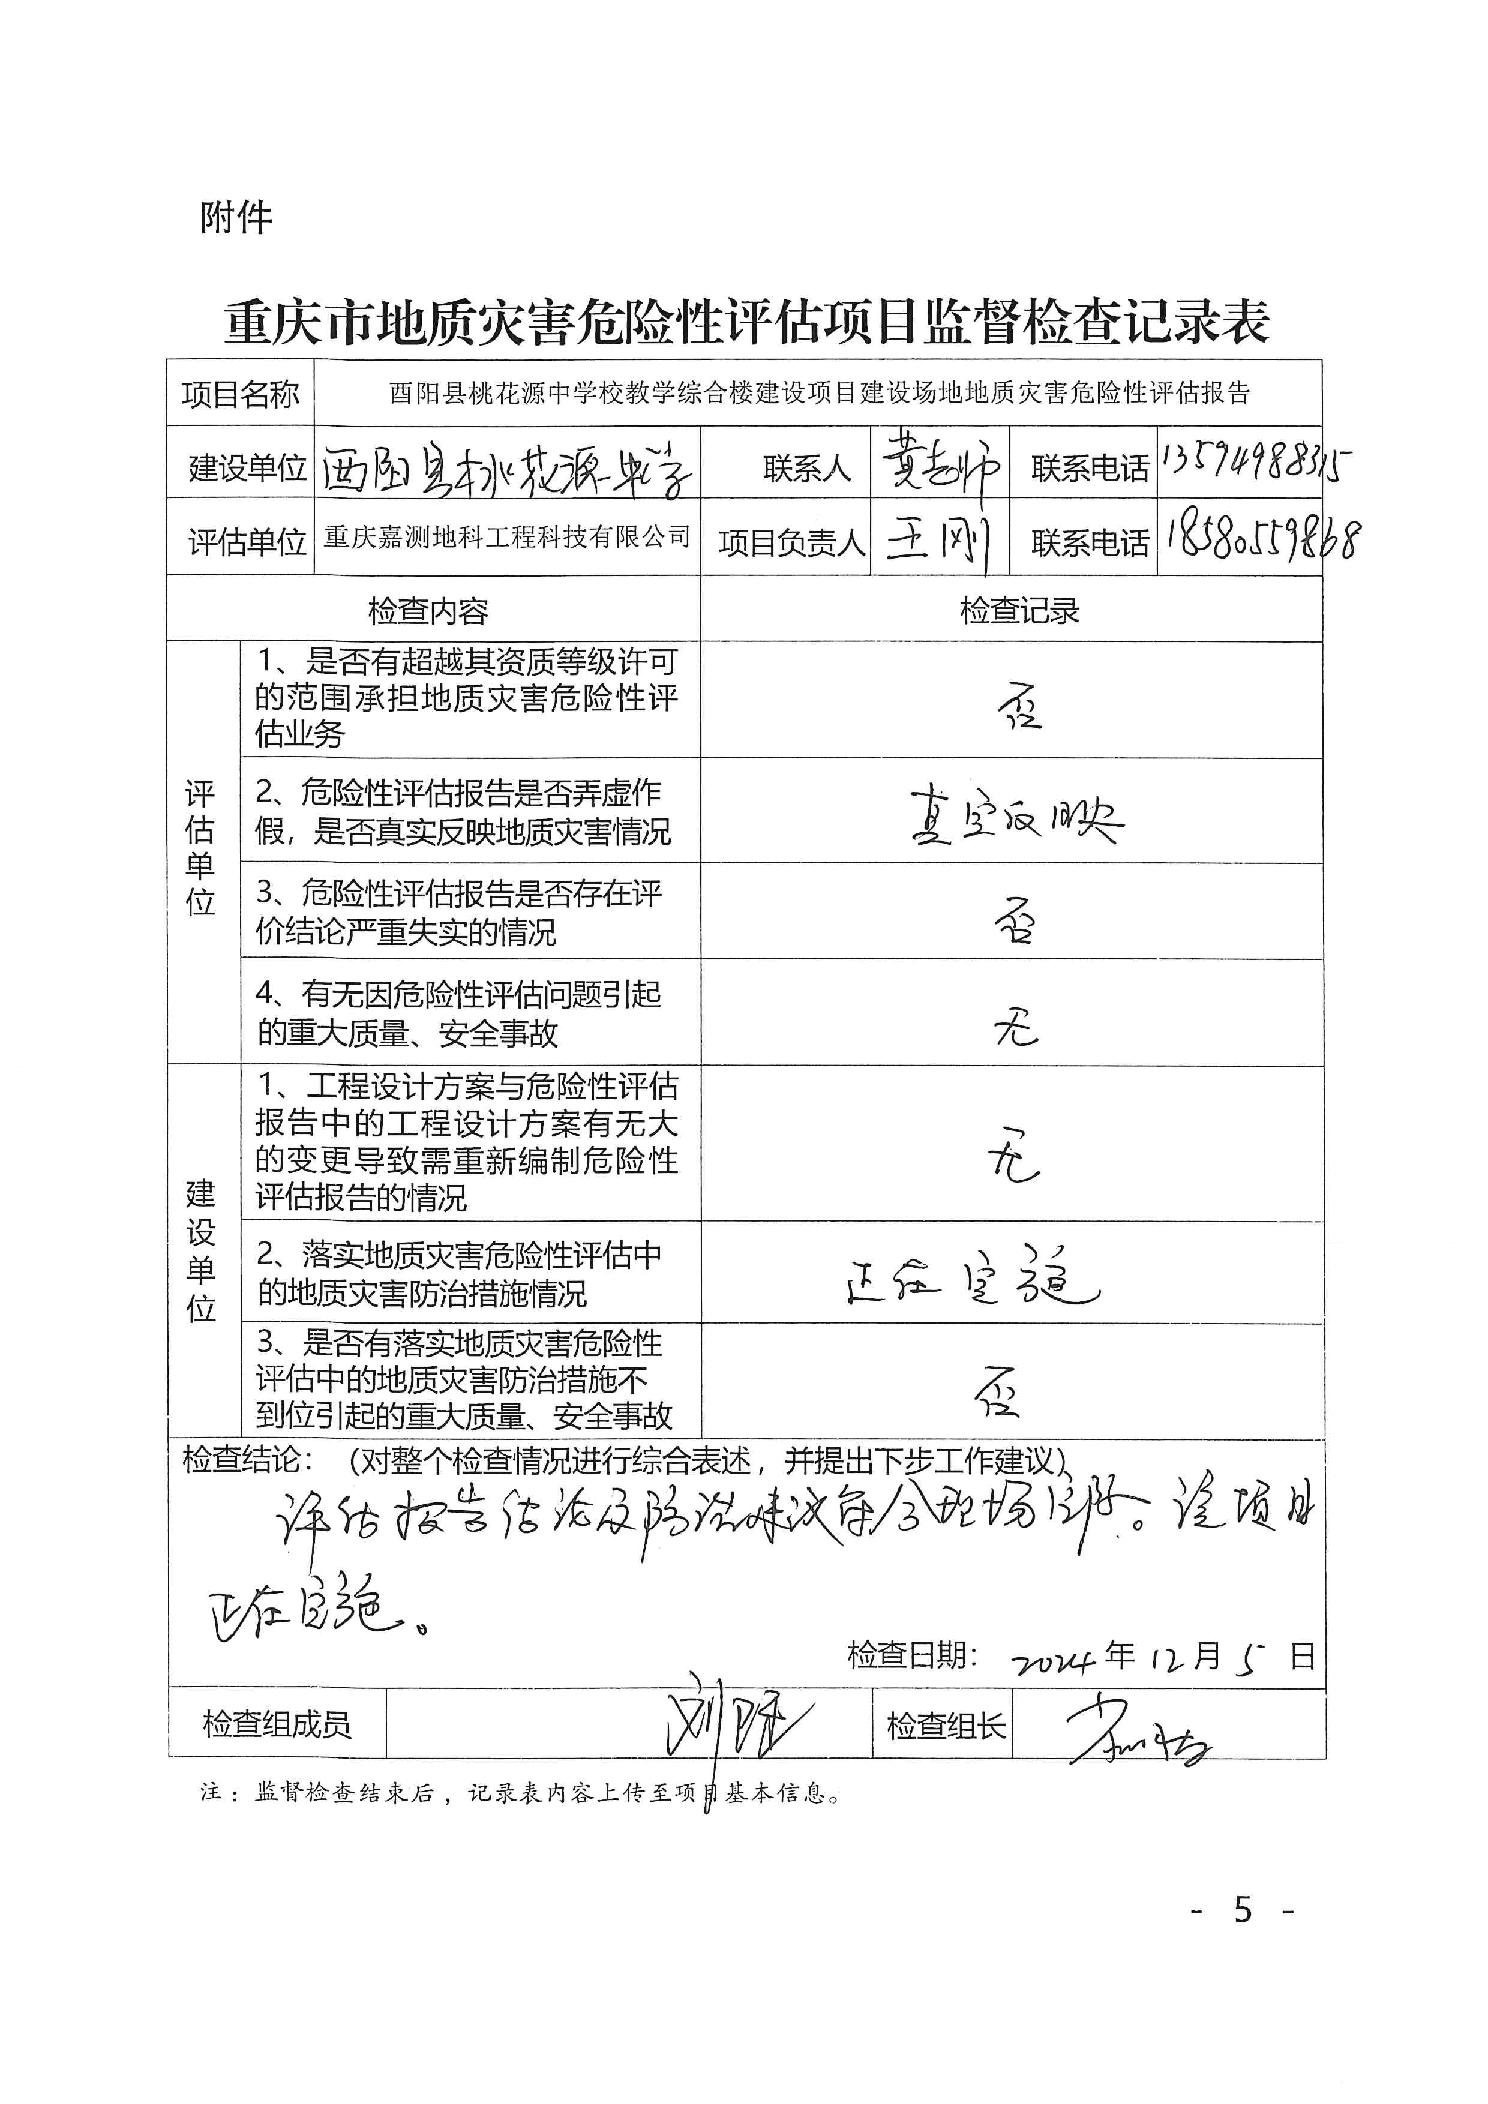 附件
重庆市地质灾害危险性评估项目监督检查记录表
项目名称 酉阳县桃花源中学校教学综合楼建设项目建设场地地质灾害危险性评估报告
建设单位 酉阳县桃花源中学 联系人 黄老师 联系电话 13594988315
评估单位 重庆嘉测地科工程科技有限公司 项目负责人 王刚 联系电话 18580559868
检查内容 检查记录
评估单位
1、是否有超越其资质等级许可
的范围承担地质灾害危险性评
估业务
否
2、危险性评估报告是否弄虚作
假，是否真实反映地质灾害情况
真实反映
3、危险性评估报告是否存在评
价结论严重失实的情况
否
4、有无因危险性评估问题引起
的重大质量、安全事故
无
建设单位
1、工程设计方案与危险性评估
报告中的工程设计方案有无大
的变更导致需重新编制危险性
评估报告的情况
无
2、落实地质灾害危险性评估中
的地质灾害防治措施情况
正在实施
3、是否有落实地质灾害危险性
评估中的地质灾害防治措施不
到位引起的重大质量、安全事故
否
检查结论：（对整个检查情况进行综合表述，并提出下步工作建议）
评估报告结论及防治建议符合现场实际。该项目
正在实施。
检查日期： 2024年12月5日
检查组成员 刘 检查组长
注：监督检查结束后，记录表内容上传至项目基本信息。
- 5 -